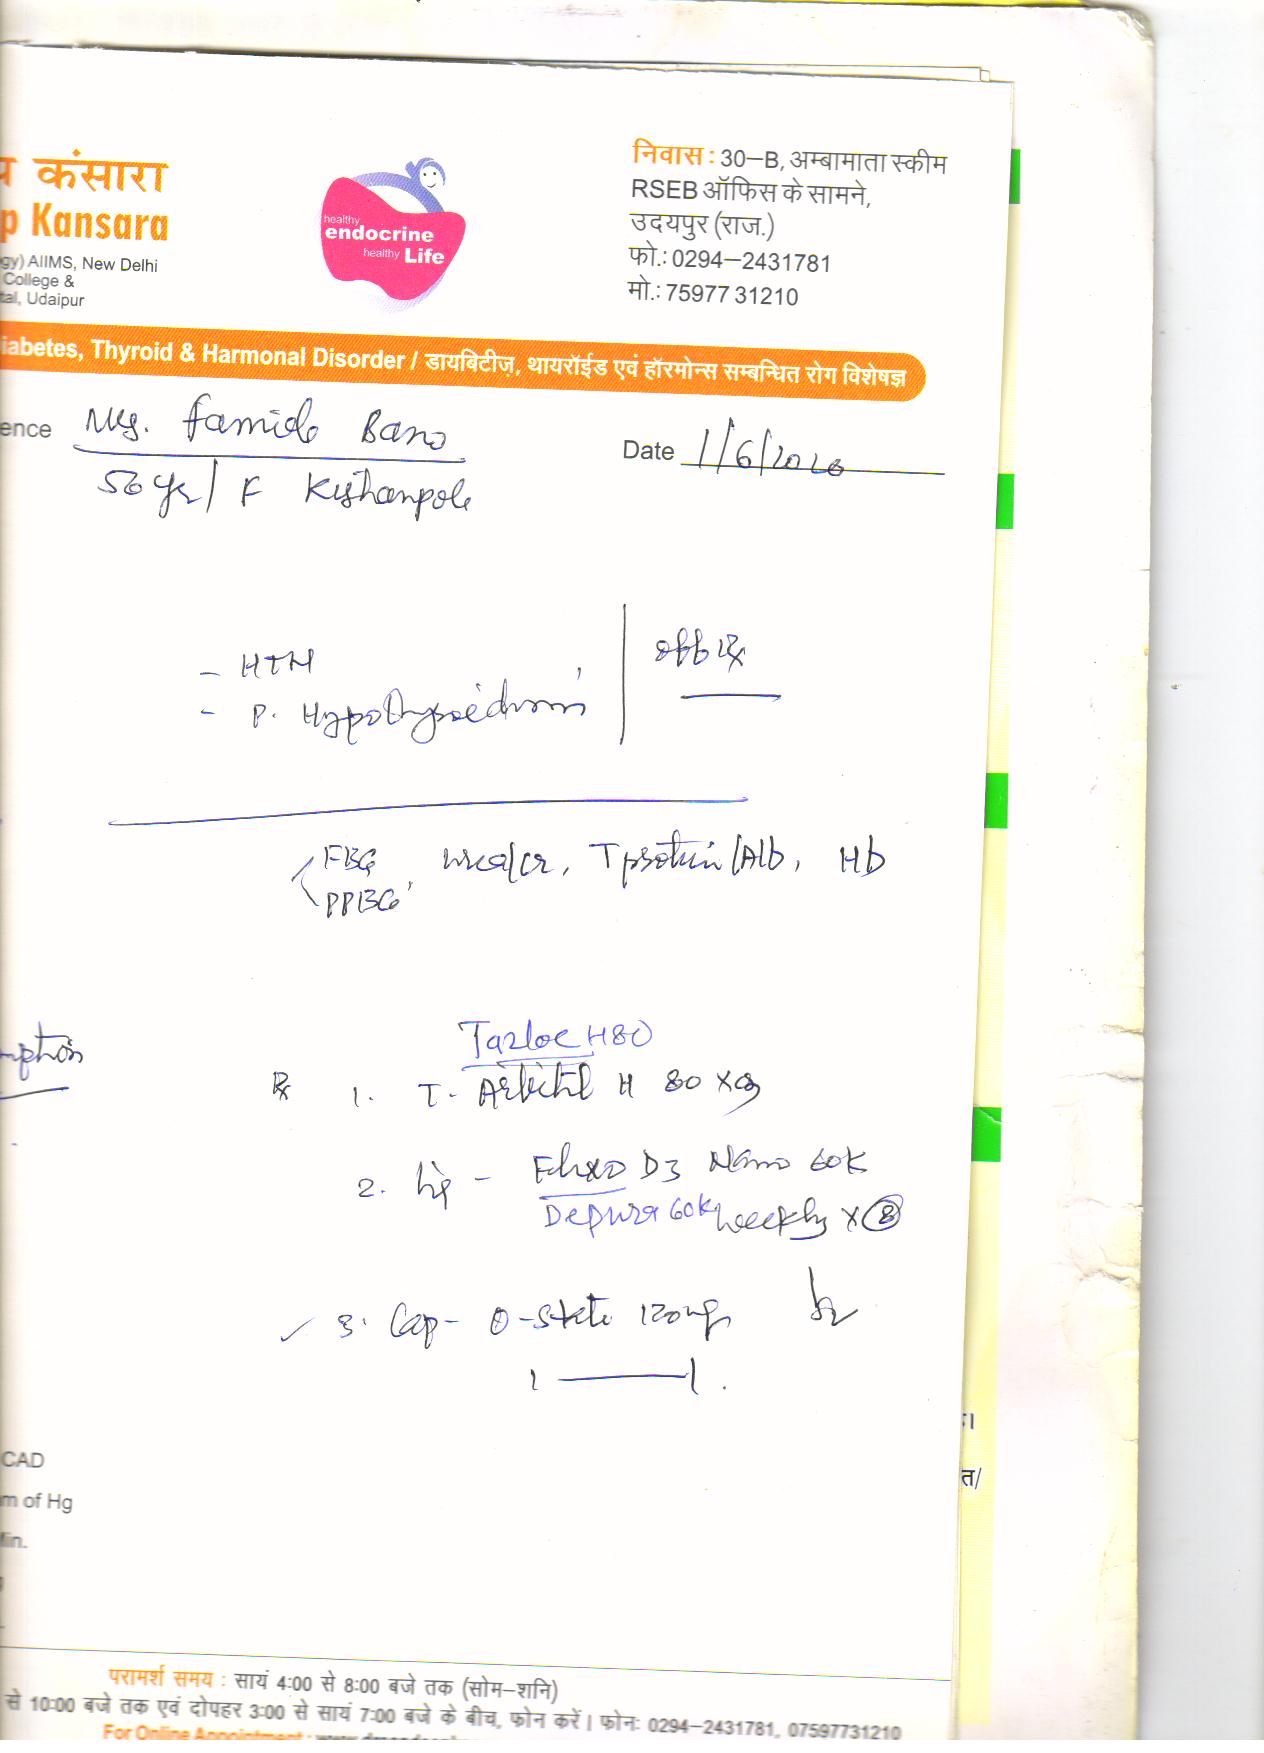 कंसारा
p Kansara
gy) AIIMS, New Delhi
College &
tal, Udaipur
healthy
endocrine
healthy Life
निवास : 30–B, अम्बामाता स्कीम
RSEB ऑफिस के सामने,
उदयपुर (राज.)
फो.: 0294–2431781
मो.: 75977 31210
iabetes, Thyroid & Harmonal Disorder / डायबिटीज़, थायरॉईड एवं हॉरमोन्स सम्बन्धित रोग विशेषज्ञ
ence Bano
Date 1/6/2020
56 yr / F Kishanpole
- HTN
- P. Hypothyroidism
off Rx
FBG urea/cr, Tprotein/Alb, Hb
PPBG
mption
Tazloc H80
Rx 1. T. Arbitel H 80 x
2. D3 Nano 60K
Depura 60K weekly x 8
3. Cap - 120mg
1 — 1
CAD
m of Hg
Min.
त/
परामर्श समय : सायं 4:00 से 8:00 बजे तक (सोम–शनि)
से 10:00 बजे तक एवं दोपहर 3:00 से सायं 7:00 बजे के बीच, फोन करें। फोन: 0294–2431781, 07597731210
For Online Appointment :